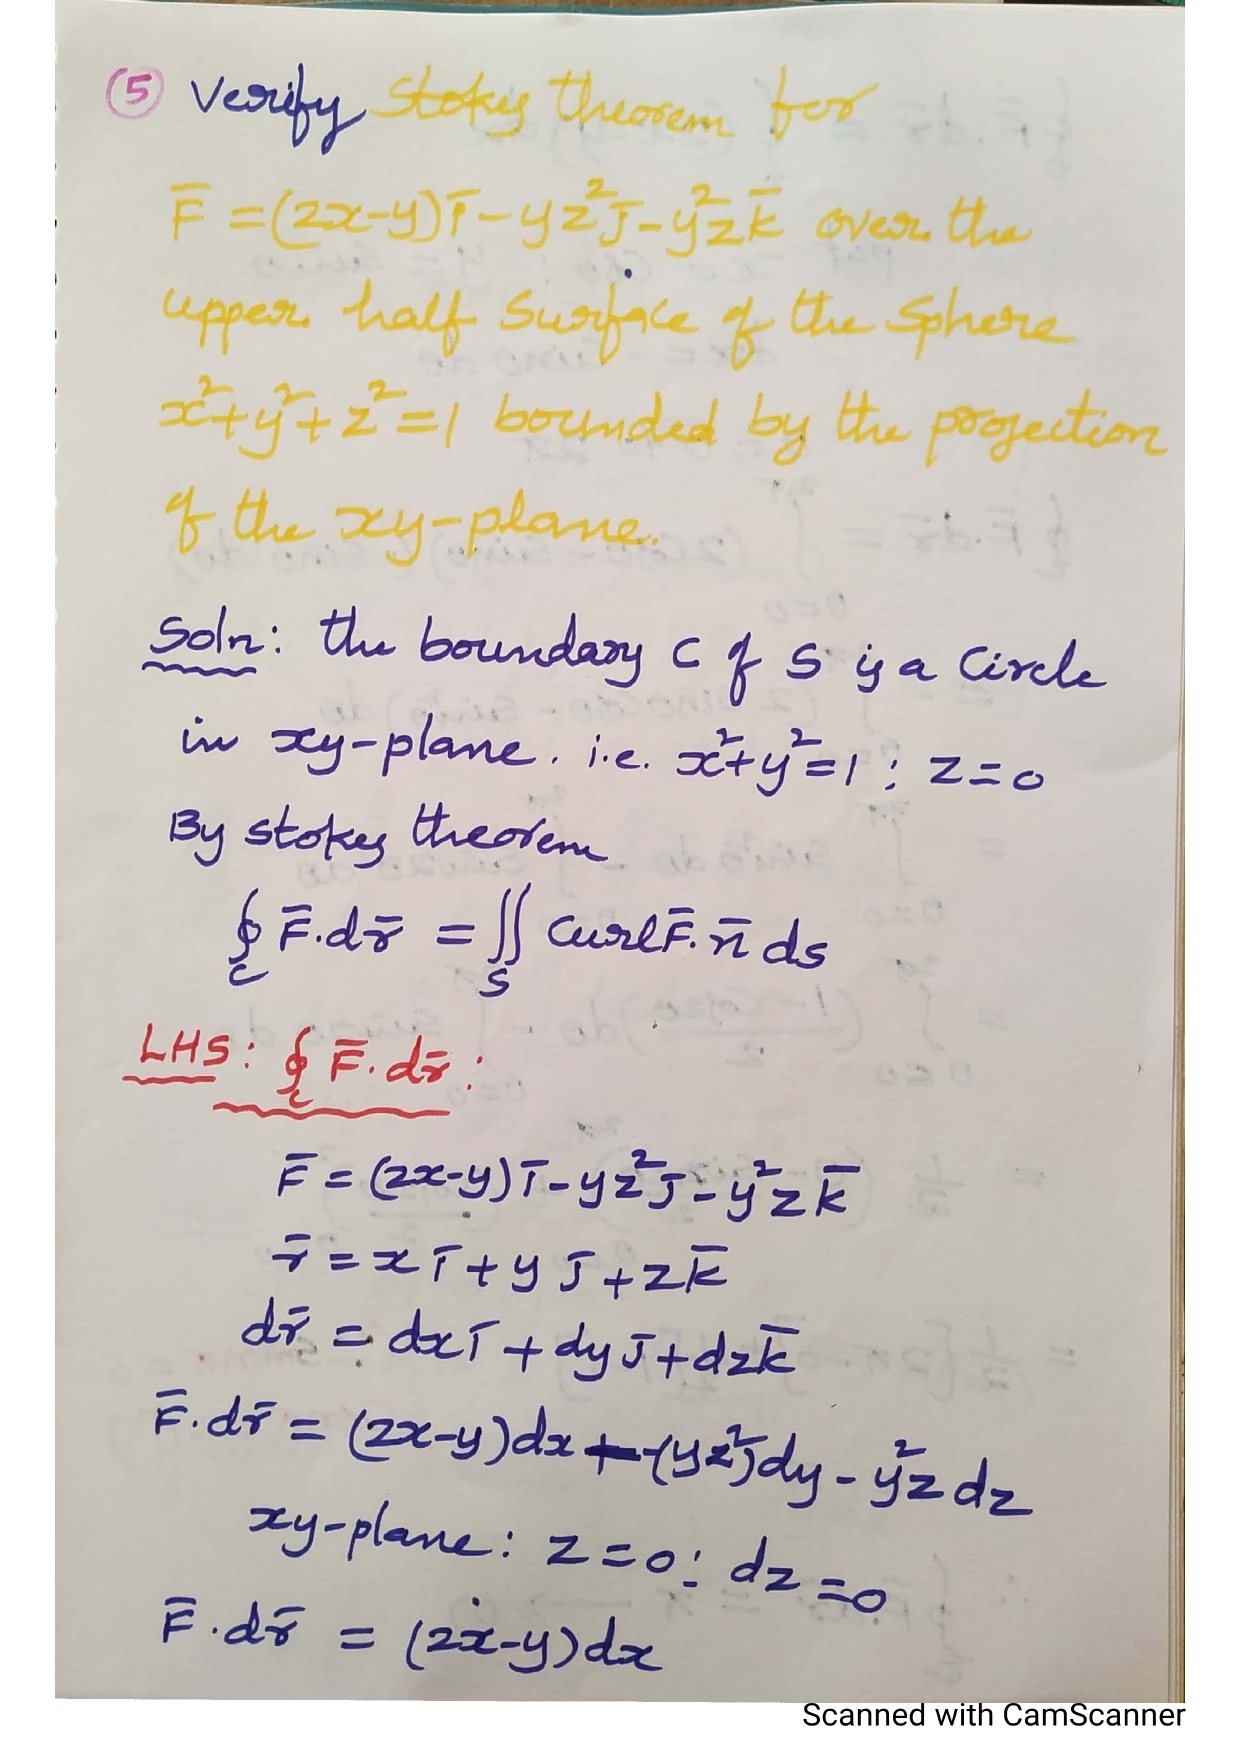 (5) Verify Stokes theorem for
F̄ = (2x-y)ī - yz²j̄ - y²zk̄ over the
upper half surface of the sphere
x²+y²+z²=1 bounded by the projection
of the xy-plane.
Soln: the boundary C of S is a circle
in xy-plane. i.e. x²+y²=1 ; z=0
By stokes theorem
∮_C F̄.dr̄ = ∬_S curlF̄.n̄ ds
LHS: ∮_C F̄.dr̄ :
F̄ = (2x-y)ī - yz²j̄ - y²zk̄
r̄ = xī + yj̄ + zk̄
dr̄ = dxī + dyj̄ + dzk̄
F̄.dr̄ = (2x-y)dx - (yz²)dy - y²z dz
xy-plane: z=0 ; dz=0
F̄.dr̄ = (2x-y)dx
Scanned with CamScanner